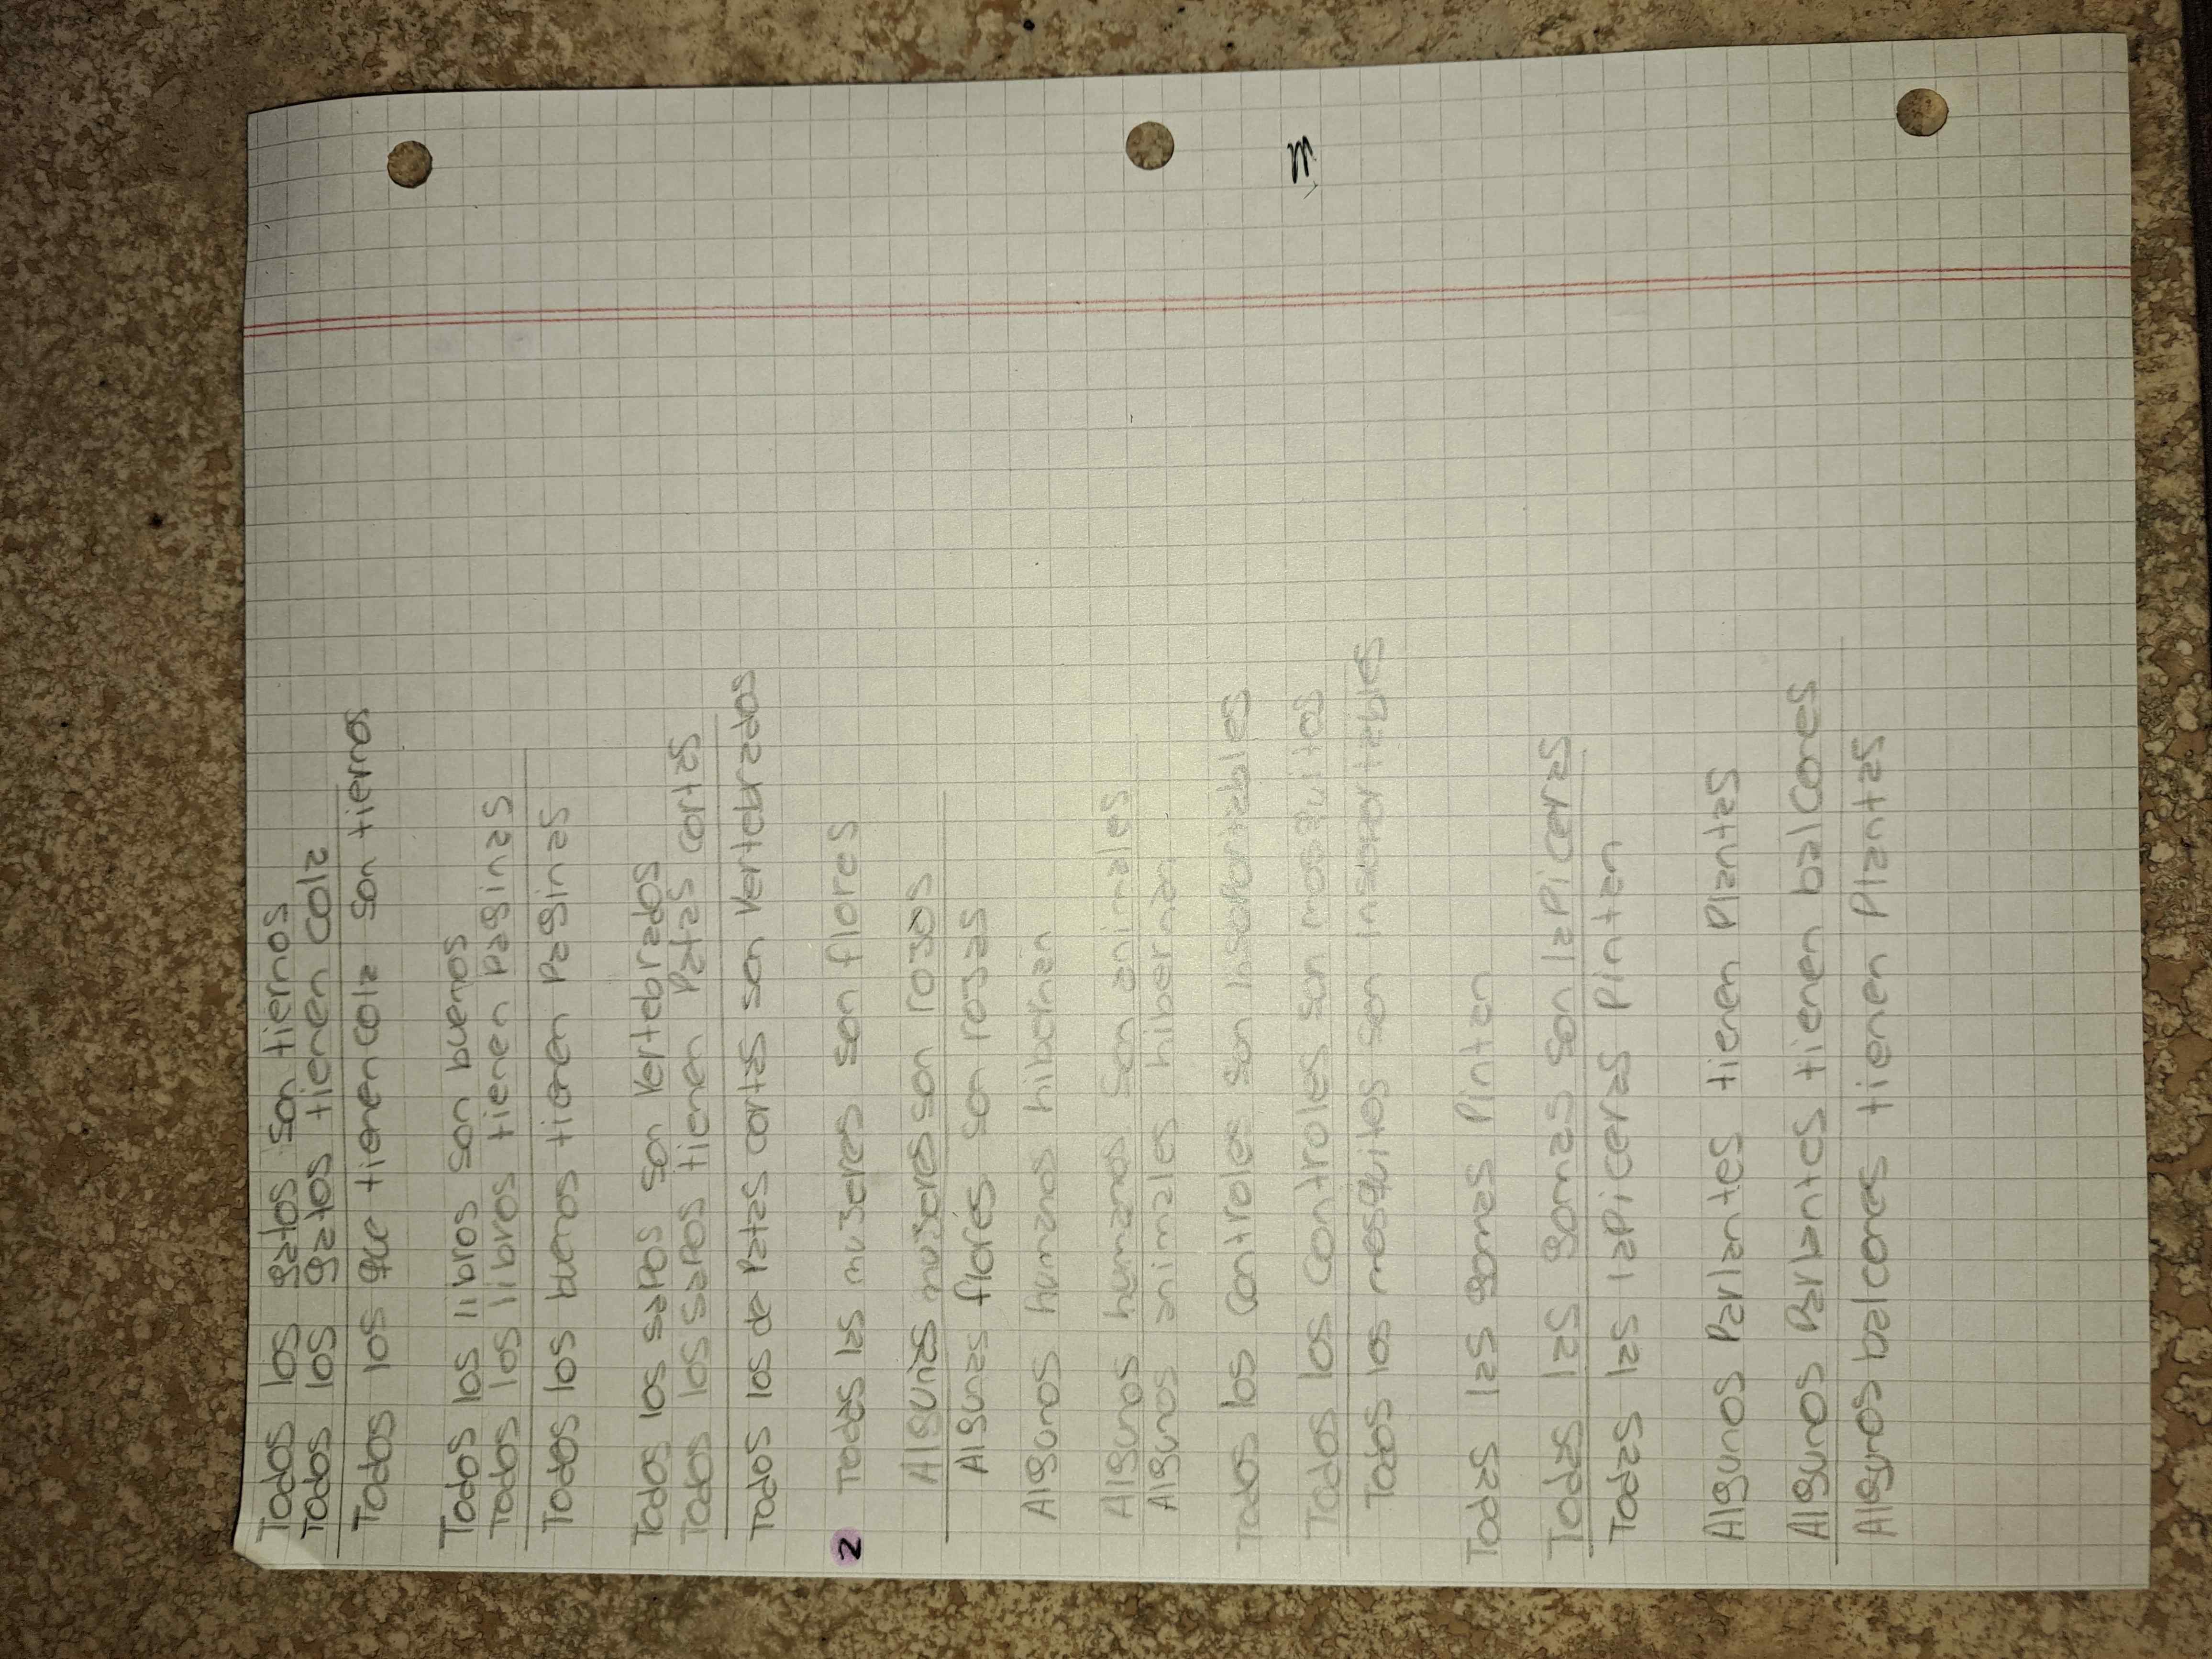 Todos los gatos son tiernos
Todos los gatos tienen cola
Todos los que tienen cola son tiernos
Todos los libros son buenos
Todos los libros tienen paginas
Todos los buenos tienen paginas
Todos los sapos son vertebrados
Todos los sapos tienen patas cortas
Todos los de patas cortas son vertebrados
2 Todas las mujeres son flores
Algunas mujeres son rojas
Algunas flores son rojas
Algunos humanos hibernan
Algunos humanos son animales
Algunos animales hibernan
Todos los controles son insoportables
Todos los controles son mosquitos
Todos los mosquitos son insoportables
Todas las gomas pintan
Todas las gomas son lapiceras
Todas las lapiceras pintan
Algunos parlantes tienen plantas
Algunos parlantes tienen balcones
Algunos balcones tienen plantas